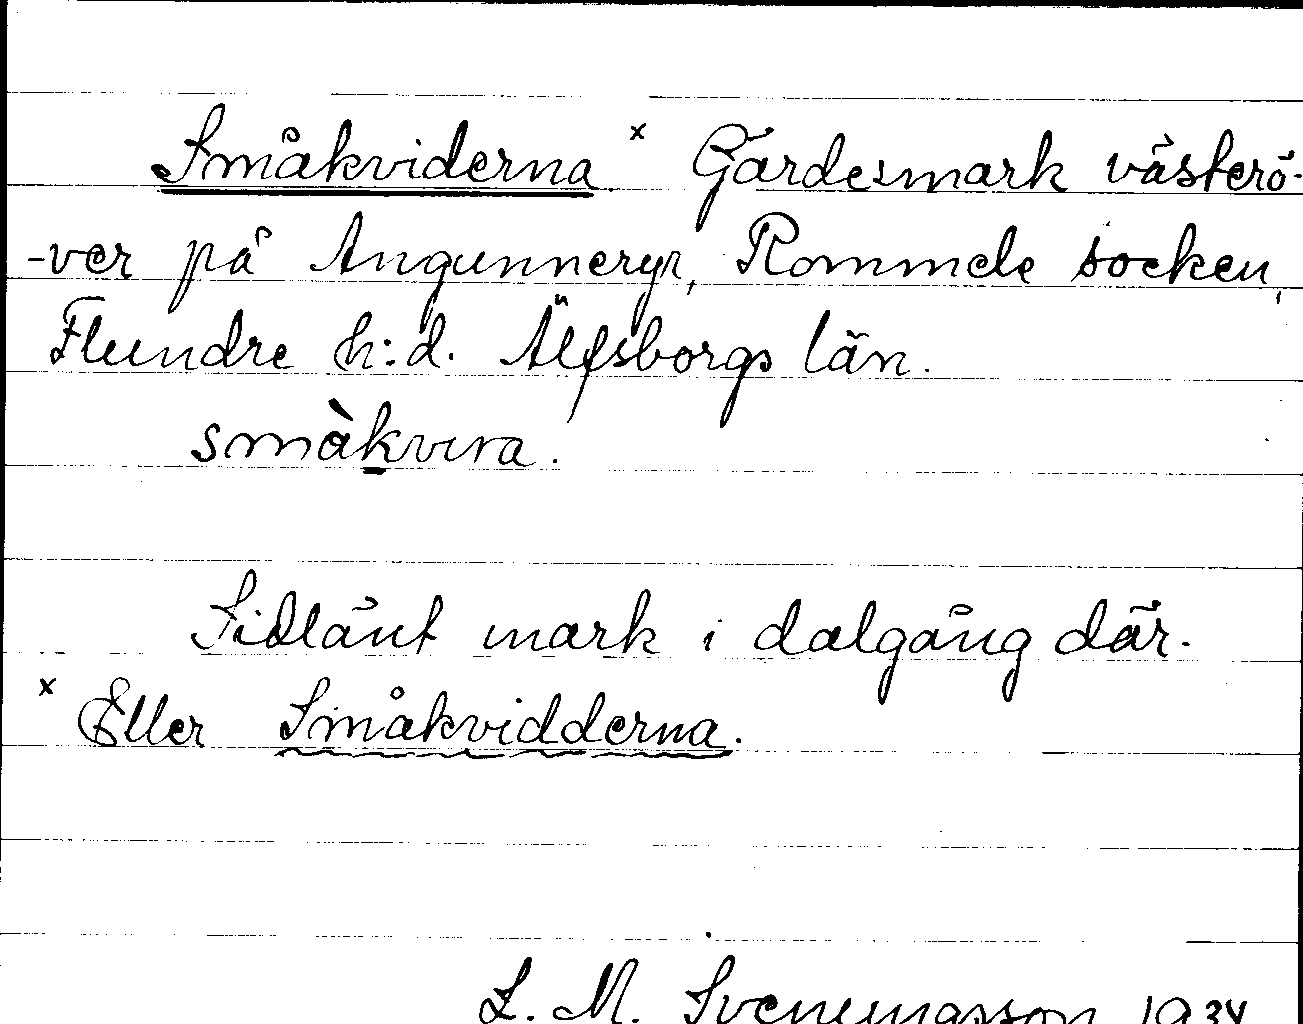 Småkviderna x Gärdesmark västerö-
-ver på Angunneryr, Rommele socken,
Flundre h:d. Älfsborgs län.
småkvira.
Sidlänt mark i dalgång där.
x Eller Småkvidderna.
L. M. Svenungsson 1934